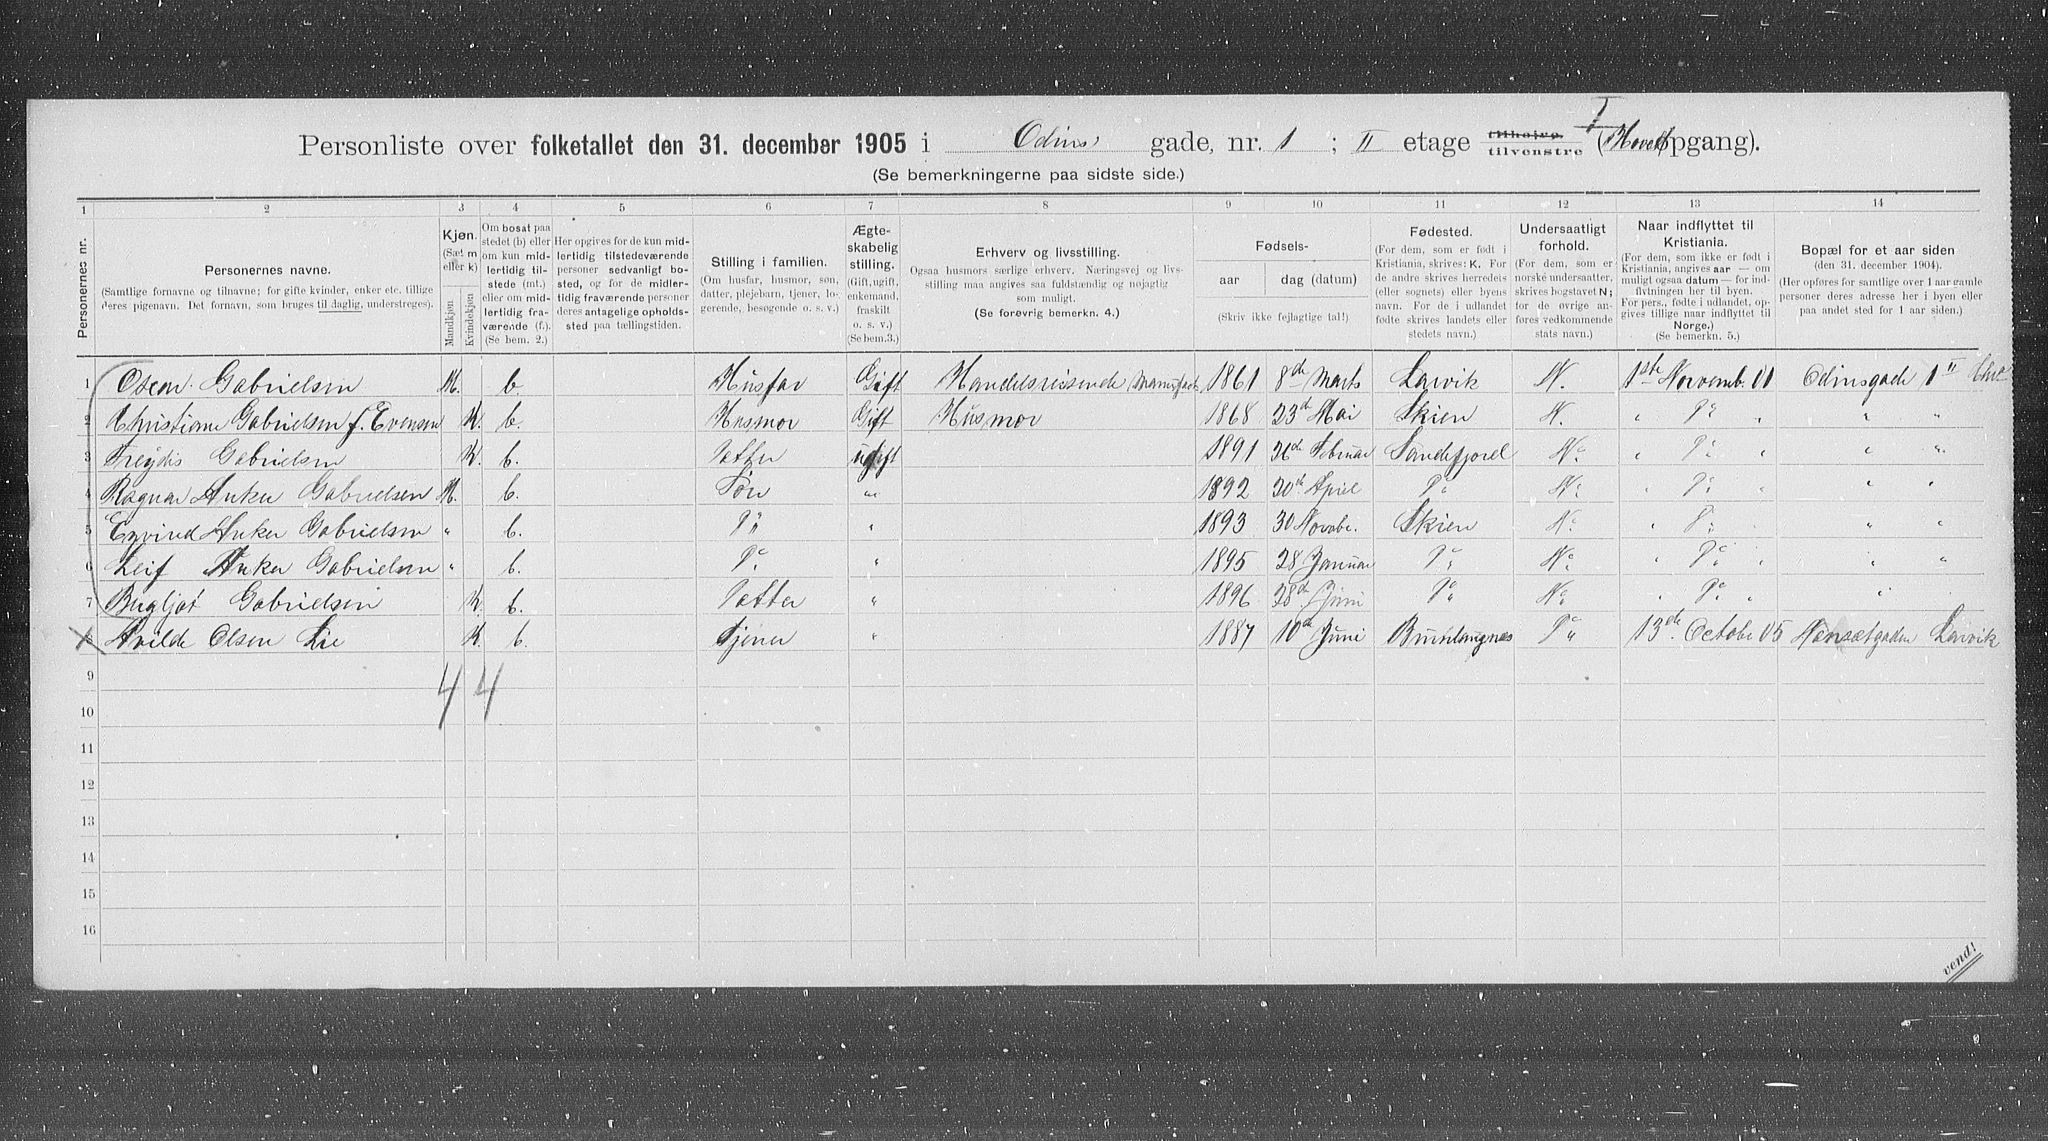 Personliste over folketallet den 31. december 1905 i Odins gade, nr. 1 ; II etage tilhøire. tilvenstre I (Hoved opgang).
(Se bemerkningerne paa sidste side.)
1 2 3 4 5 6 7 8 9 10 11 12 13 14
Personernes nr.
Personernes navne.
(Samtlige fornavne og tilnavne; for gifte kvinder, enker etc. tillige
deres pigenavn. Det fornavn, som bruges til daglig, understreges).
Kjøn.
(Sæt m
eller k)
Mandkjøn
Kvindekjøn
Om bosat paa
stedet (b) eller
om kun mid-
lertidig til-
stede (mt.)
eller om mid-
lertidig fra-
værende (f.).
(Se bem. 2.)
Her opgives for de kun mid-
lertidig tilstedeværende
personer sedvanligt bo-
sted, og for de midler-
tidig fraværende personer
deres antagelige opholds-
sted paa tællingstiden.
Stilling i familien.
(Om husfar, husmor, søn,
datter, plejebarn, tjener, lo-
gerende, besøgende o. s. v.)
Ægte-
skabelig
stilling.
(Gift, ugift,
enkemand,
fraskilt
o. s. v.)
(Se bem.3.)
Erhverv og livsstilling.
Ogsaa husmors særlige erhverv. Næringsvej og livs-
stilling maa angives saa fuldstændig og nøjagtig
som muligt.
(Se forøvrig bemerkn. 4.)
Fødsels-
aar dag (datum)
(Skriv ikke fejlagtige tal!)
Fødested.
(For dem, som er født i
Kristiania, skrives: K. For
de andre skrives herredets
(eller sognets) eller byens
navn. For de i udlandet
fødte skrives landets eller
stedets navn.)
Undersaatligt
forhold.
(For dem, som er
norske undersaatter,
skrives bogstavet N;
for de øvrige an-
føres vedkommende
stats navn.)
Naar indflyttet til
Kristiania.
(For dem, som ikke er født i
Kristiania, angives aar — om
muligt ogsaa datum — for ind-
flytningen her til byen.
For pers., fødte i udlandet, op-
gives tillige naar indflyttet til
Norge.)
(Se bemerkn. 5.)
Bopæl for et aar siden
(den 31. december 1904).
(Her opføres for samtlige over 1 aar gamle
personer deres adresse her i byen eller
paa andet sted for 1 aar siden.)
1 Oscar Gabrielsen M. b. Husfar Gift Handelsreisende Manufakt. 1861 8de Marts Larvik N. 1ste Novemb. 01 Odinsgade 1 II Chra
2 Christiane Gabrielsen f. Evensen K. b. Husmor Gift Husmor 1868 23d Mai Skien N. " Do " " "
3 Freydis Gabrielsen K. b. Datter ugift 1891 26de Februar Sandefjord No " Do " " "
4 Ragnar Anker Gabrielsen M. b. Søn " 1892 20de April Do No " Do " " "
5 Eyvind Anker Gabrielsen " b. Do " 1893 30 Novbr. Skien No " Do " "
6 Leif Anker Gabrielsen " b. Do " 1895 28 Januar Do No " Do " " "
7 Bergljot Gabrielsen K. b. Datter " 1896 28de Juni Do No " Do " "
X 8 Hvilde Olsen Lie K. b. Tjener " 1887 10de Juni Brunlangnæs Do 13de October 05 Nansetgaden Larvik
9 4 4
10
11
12
13
14
15
16
vend!